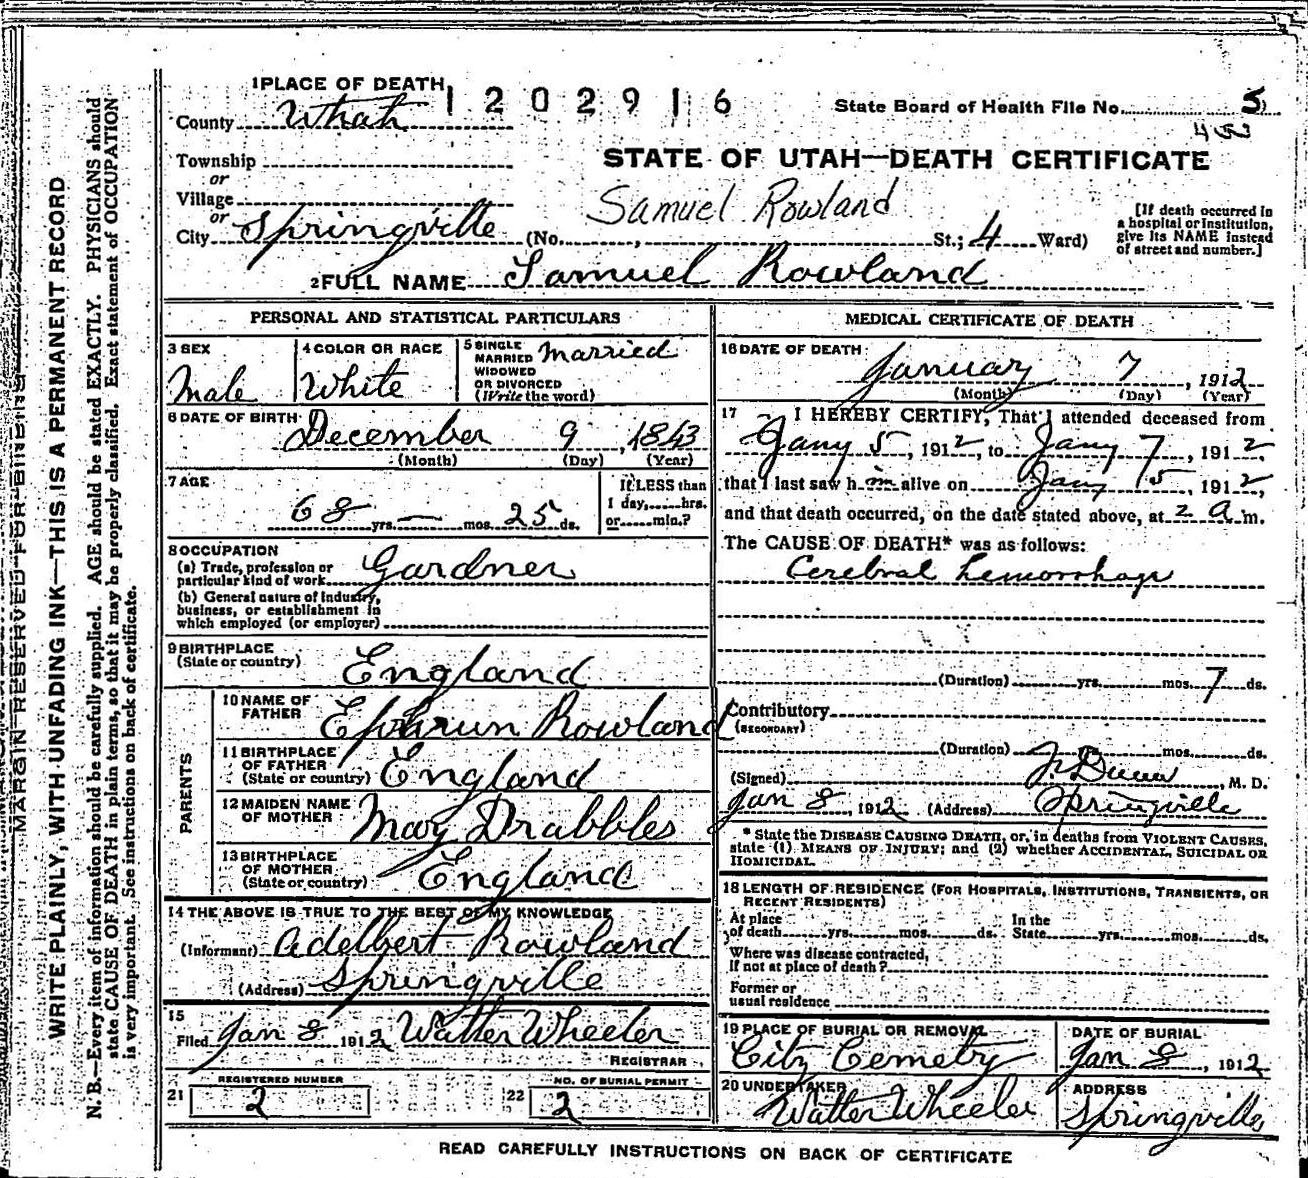 1 PLACE OF DEATH
1202916
State Board of Health File No. 5
County Utah
Township
STATE OF UTAH—DEATH CERTIFICATE
or
Village
Samuel Rowland
or
City Springville (No. , St.; 4 Ward)
[If death occurred in
a hospital or institution,
give its NAME instead
of street and number.]
2 FULL NAME Samuel Rowland
PERSONAL AND STATISTICAL PARTICULARS
3 SEX
Male
4 COLOR OR RACE
White
5 SINGLE
MARRIED
WIDOWED
OR DIVORCED
(Write the word)
Married
6 DATE OF BIRTH
December 9, 1843
(Month) (Day) (Year)
7 AGE
68 yrs. — mos. 25 ds.
If LESS than
1 day, hrs.
or min.?
8 OCCUPATION
(a) Trade, profession or
particular kind of work Gardner
(b) General nature of industry,
business, or establishment in
which employed (or employer)
9 BIRTHPLACE
(State or country) England
PARENTS
10 NAME OF
FATHER Ephraim Rowland
11 BIRTHPLACE
OF FATHER
(State or country) England
12 MAIDEN NAME
OF MOTHER Mary Drabbles
13 BIRTHPLACE
OF MOTHER
(State or country) England
14 THE ABOVE IS TRUE TO THE BEST OF MY KNOWLEDGE
(Informant) Adelbert Rowland
(Address) Springville
15
Filed Jan 8 1912 Walter Wheeler
REGISTRAR
21 REGISTERED NUMBER
2
22 NO. OF BURIAL PERMIT
2
MEDICAL CERTIFICATE OF DEATH
16 DATE OF DEATH
January 7, 1912
(Month) (Day) (Year)
17 I HEREBY CERTIFY, That I attended deceased from
Jany 5, 1912, to Jany 7, 1912
that I last saw him alive on Jany 5, 1912,
and that death occurred, on the date stated above, at 2 a m.
The CAUSE OF DEATH* was as follows:
Cerebral hemorrhage
(Duration) yrs. mos. 7 ds.
Contributory
(SECONDARY)
(Duration) mos. ds.
(Signed) Dunn, M. D.
Jan 8, 1912 (Address) Springville
* State the DISEASE CAUSING DEATH, or, in deaths from VIOLENT CAUSES,
state (1) MEANS OF INJURY; and (2) whether ACCIDENTAL, SUICIDAL OR
HOMICIDAL
18 LENGTH OF RESIDENCE (FOR HOSPITALS, INSTITUTIONS, TRANSIENTS, OR
RECENT RESIDENTS)
At place
of death yrs. mos. ds.
In the
State yrs. mos. ds.
Where was disease contracted,
If not at place of death?
Former or
usual residence
19 PLACE OF BURIAL OR REMOVAL
City Cemetry
DATE OF BURIAL
Jan 8, 1912
20 UNDERTAKER
Walter Wheeler
ADDRESS
Springville
READ CAREFULLY INSTRUCTIONS ON BACK OF CERTIFICATE
MARGIN RESERVED FOR BINDING
WRITE PLAINLY, WITH UNFADING INK—THIS IS A PERMANENT RECORD
N. B.—Every item of information should be carefully supplied. AGE should be stated EXACTLY. PHYSICIANS should
state CAUSE OF DEATH in plain terms, so that it may be properly classified. Exact statement of OCCUPATION
is very important. See instructions on back of certificate.